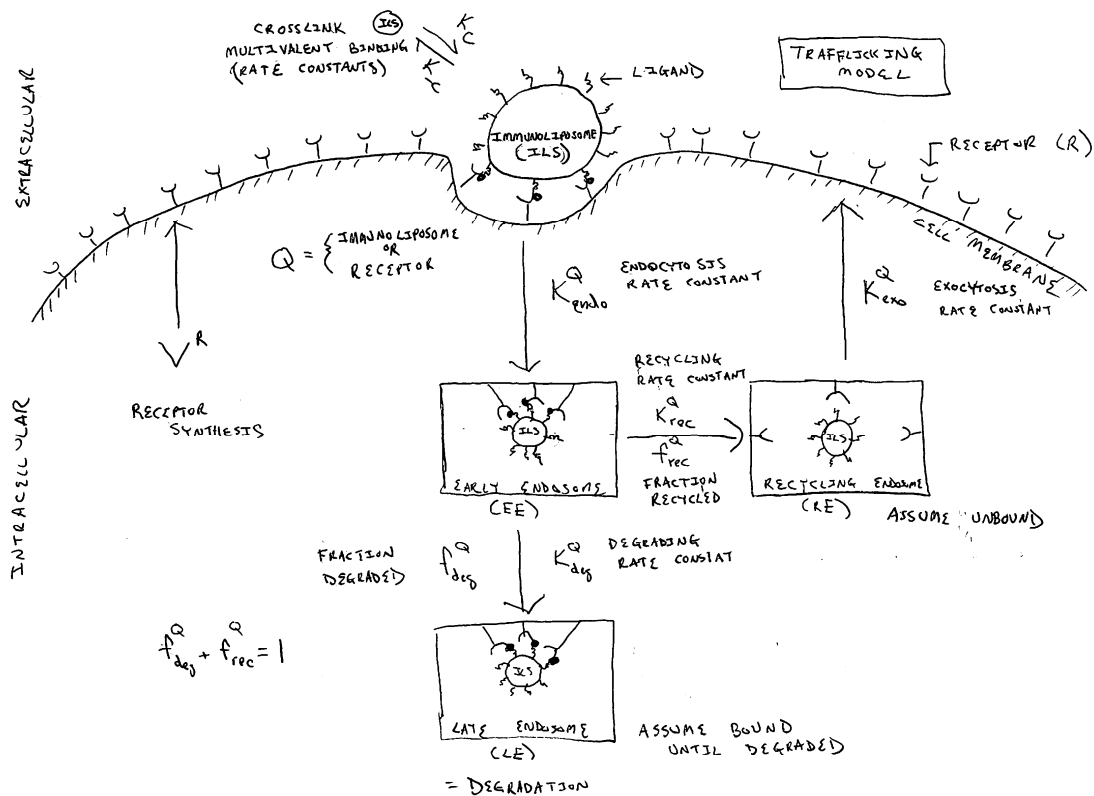 CROSSLINK ILS
MULTIVALENT BINDING
(RATE CONSTANTS)
K
C
K
r
LIGAND
TRAFFLICKING
MODEL
EXTRACELLULAR
IMMUNOLIPOSOME
(ILS)
RECEPTOR (R)
CELL MEMBRANE
Q = { IMMUNOLIPOSOME
OR
RECEPTOR
K endo Q
ENDOCYTOSIS
RATE CONSTANT
K exo Q
EXOCYTOSIS
RATE CONSTANT
R
RECEPTOR
SYNTHESIS
INTRACELLULAR
RECYCLING
RATE CONSTANT
K rec Q
f rec Q
FRACTION
RECYCLED
ILS
EARLY ENDOSOME
(EE)
ILS
RECYCLING ENDOSOME
(RE)
ASSUME UNBOUND
FRACTION
DEGRADED
f deg Q
K deg Q
DEGRADING
RATE CONSTAT
f deg Q + f rec Q = 1
ILS
LATE ENDOSOME
(LE)
ASSUME BOUND
UNTIL DEGRADED
= DEGRADATION